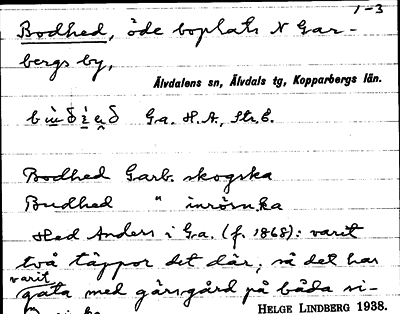 1-3
Bodhed, öde boplats N Gar-
bergs by,
Älvdalens sn, Älvdals tg, Kopparbergs län.
Ga. H.A., Str.E.
Bodhed Garb. skogska
Budhed " inrösn.ka
Hed Anders i Ga. (f. 1868): varit
två täppor det där; så det har
varit
gata med gärsgård på båda si-
HELGE LINDBERG 1938.